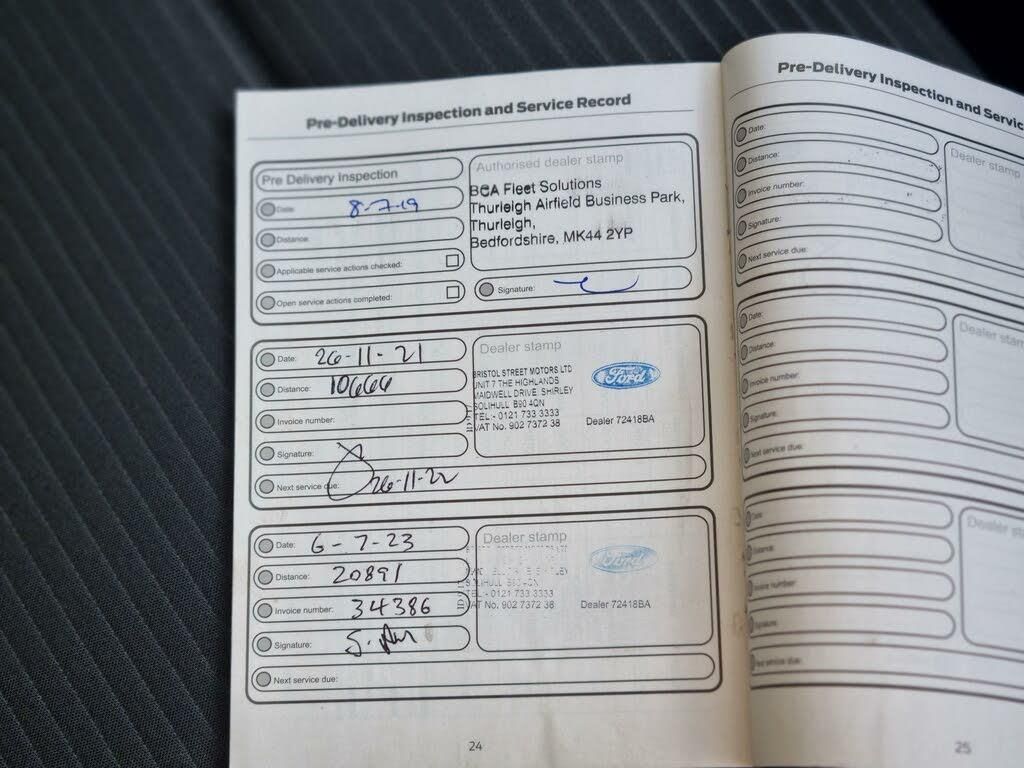 Pre-Delivery Inspection and Service Record
Pre Delivery Inspection
Date: 8-7-19
Distance:
Applicable service actions checked:
Open service actions completed:
Authorised dealer stamp
BCA Fleet Solutions
Thurleigh Airfield Business Park,
Thurleigh,
Bedfordshire, MK44 2YP
Signature:
Date: 26-11-21
Distance: 10666
Invoice number:
Signature:
Next service due: 26-11-22
Dealer stamp
BRISTOL STREET MOTORS LTD
UNIT 7 THE HIGHLANDS
MAIDWELL DRIVE, SHIRLEY
SOLIHULL B90 4QN
TEL:- 0121 733 3333
VAT No. 902 7372 38
Ford
Dealer 72418BA
Date: 6-7-23
Distance: 20891
Invoice number: 34386
Signature:
Next service due:
Dealer stamp
SOLIHULL B90 4QN
TEL:- 0121 733 3333
VAT No. 902 7372 38
Ford
Dealer 72418BA
24
Pre-Delivery Inspection and Servic
Date:
Distance:
Invoice number:
Signature:
Next service due:
Dealer stamp
Date:
Distance:
Invoice number:
Signature:
Next service due:
Dealer stam
Date:
Distance:
Invoice number:
Signature:
Next service due:
Dealer st
25